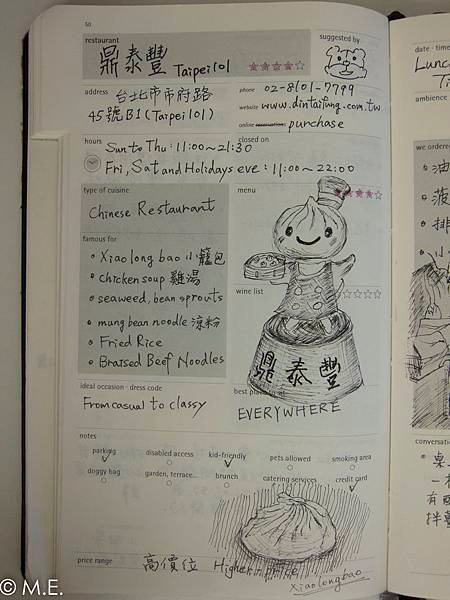 50
restaurant
suggested by
鼎泰豐 Taipei101
address
台北市市府路
45號B1(Taipei101)
phone 02-8101-7799
website www.dintaifung.com.tw
online reservations: purchase
hours
closed on
Sun to Thu : 11:00~21:30
Fri, Sat and Holidays eve : 11:00~22:00
type of cuisine
Chinese Restaurant
menu
famous for
Xiao long bao 小籠包
chicken soup 雞湯
seaweed, bean sprouts
mung bean noodle 涼粉
Fried Rice
Braised Beef Noodles
wine list
鼎泰豐
ideal occasion · dress code
From casual to classy
best place to sit
EVERYWHERE
notes
parking
disabled access
kid-friendly
pets allowed
smoking area
doggy bag
garden, terrace...
brunch
catering services
credit card
price range
高價位 Higher-price
xiaolongbao
date · time
Lunc
Ti
ambience
we ordered
油
菠
排
小
conversati
桌
一
有
拌
© M.E.